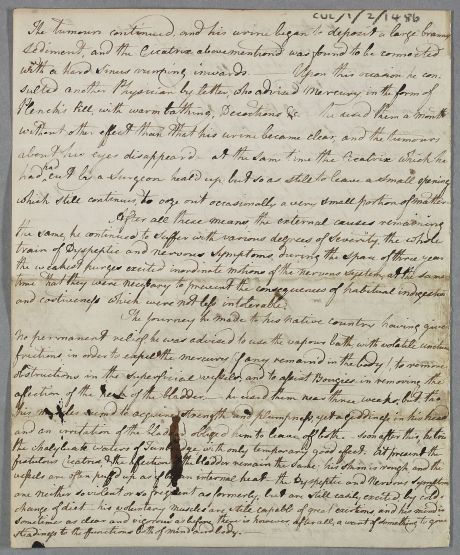 CUL/1/2/1486
The tumours continued, and his urine began to deposit a large branny
sediment, and the Cicatrix abovementiond was found to be connected
with a hard sinus running inwards. Upon this occasion he con
sulted another Physician by letter, who advised Mercury in the form of
Plenck's Pill, with warm bathing, Decoctions &c. he used them a month
without other effect than that his urine became clear, and the tumours
about his eyes disappeared at the same time the Cicatrix which he
had cut by a Surgeon heald up, but so as still to leave a small opening
which still continues, to ooze out occasionally a very small portion of matter
After all these means the external causes remaining
the same, he continued to suffer with various degrees of Severity, the whole
train of Dyspeptic and nervous Symptoms, during the space of three years
the weakest purges excited inordinate motions of the nervous system, at the same
time that they were necessary to prevent the consequences of habitual indigestion
and costiveness which were not less intolerable.
The Journey he made to his native country having given
no permanent relief he was advised to use the vapour bath, with volatile unctuous
frictions in order to expel the mercury (if any remained in the body), to remove
obstructions in the superficial vessels, and to assist Bougies in removing the
affection of the neck of the bladder. he used them near three weeks, but tho
his muscles seemd to acquire strength and plumpness yet a giddiness in his head
and an irritation of the bladder obliged him to leave off both. soon after this, he tried
the Chalybeate waters of Tunbridge, with only temporary good effect. At present the
fistulous Cicatrix, & the affection of the bladder remain the same. his skin is rough and the
vessels are often puff'd up as if by an internal heat. the Dyspeptic and Nervous Symptoms
are neither so violent or so frequent as formerly, but are still easily excited by cold
change of diet. his voluntary muscles are still capable of great exertions, and his mind is
sometimes as clear and vigorous as before, there is however, after all, a want of something to give
steadiness to the functions both of mind and body.